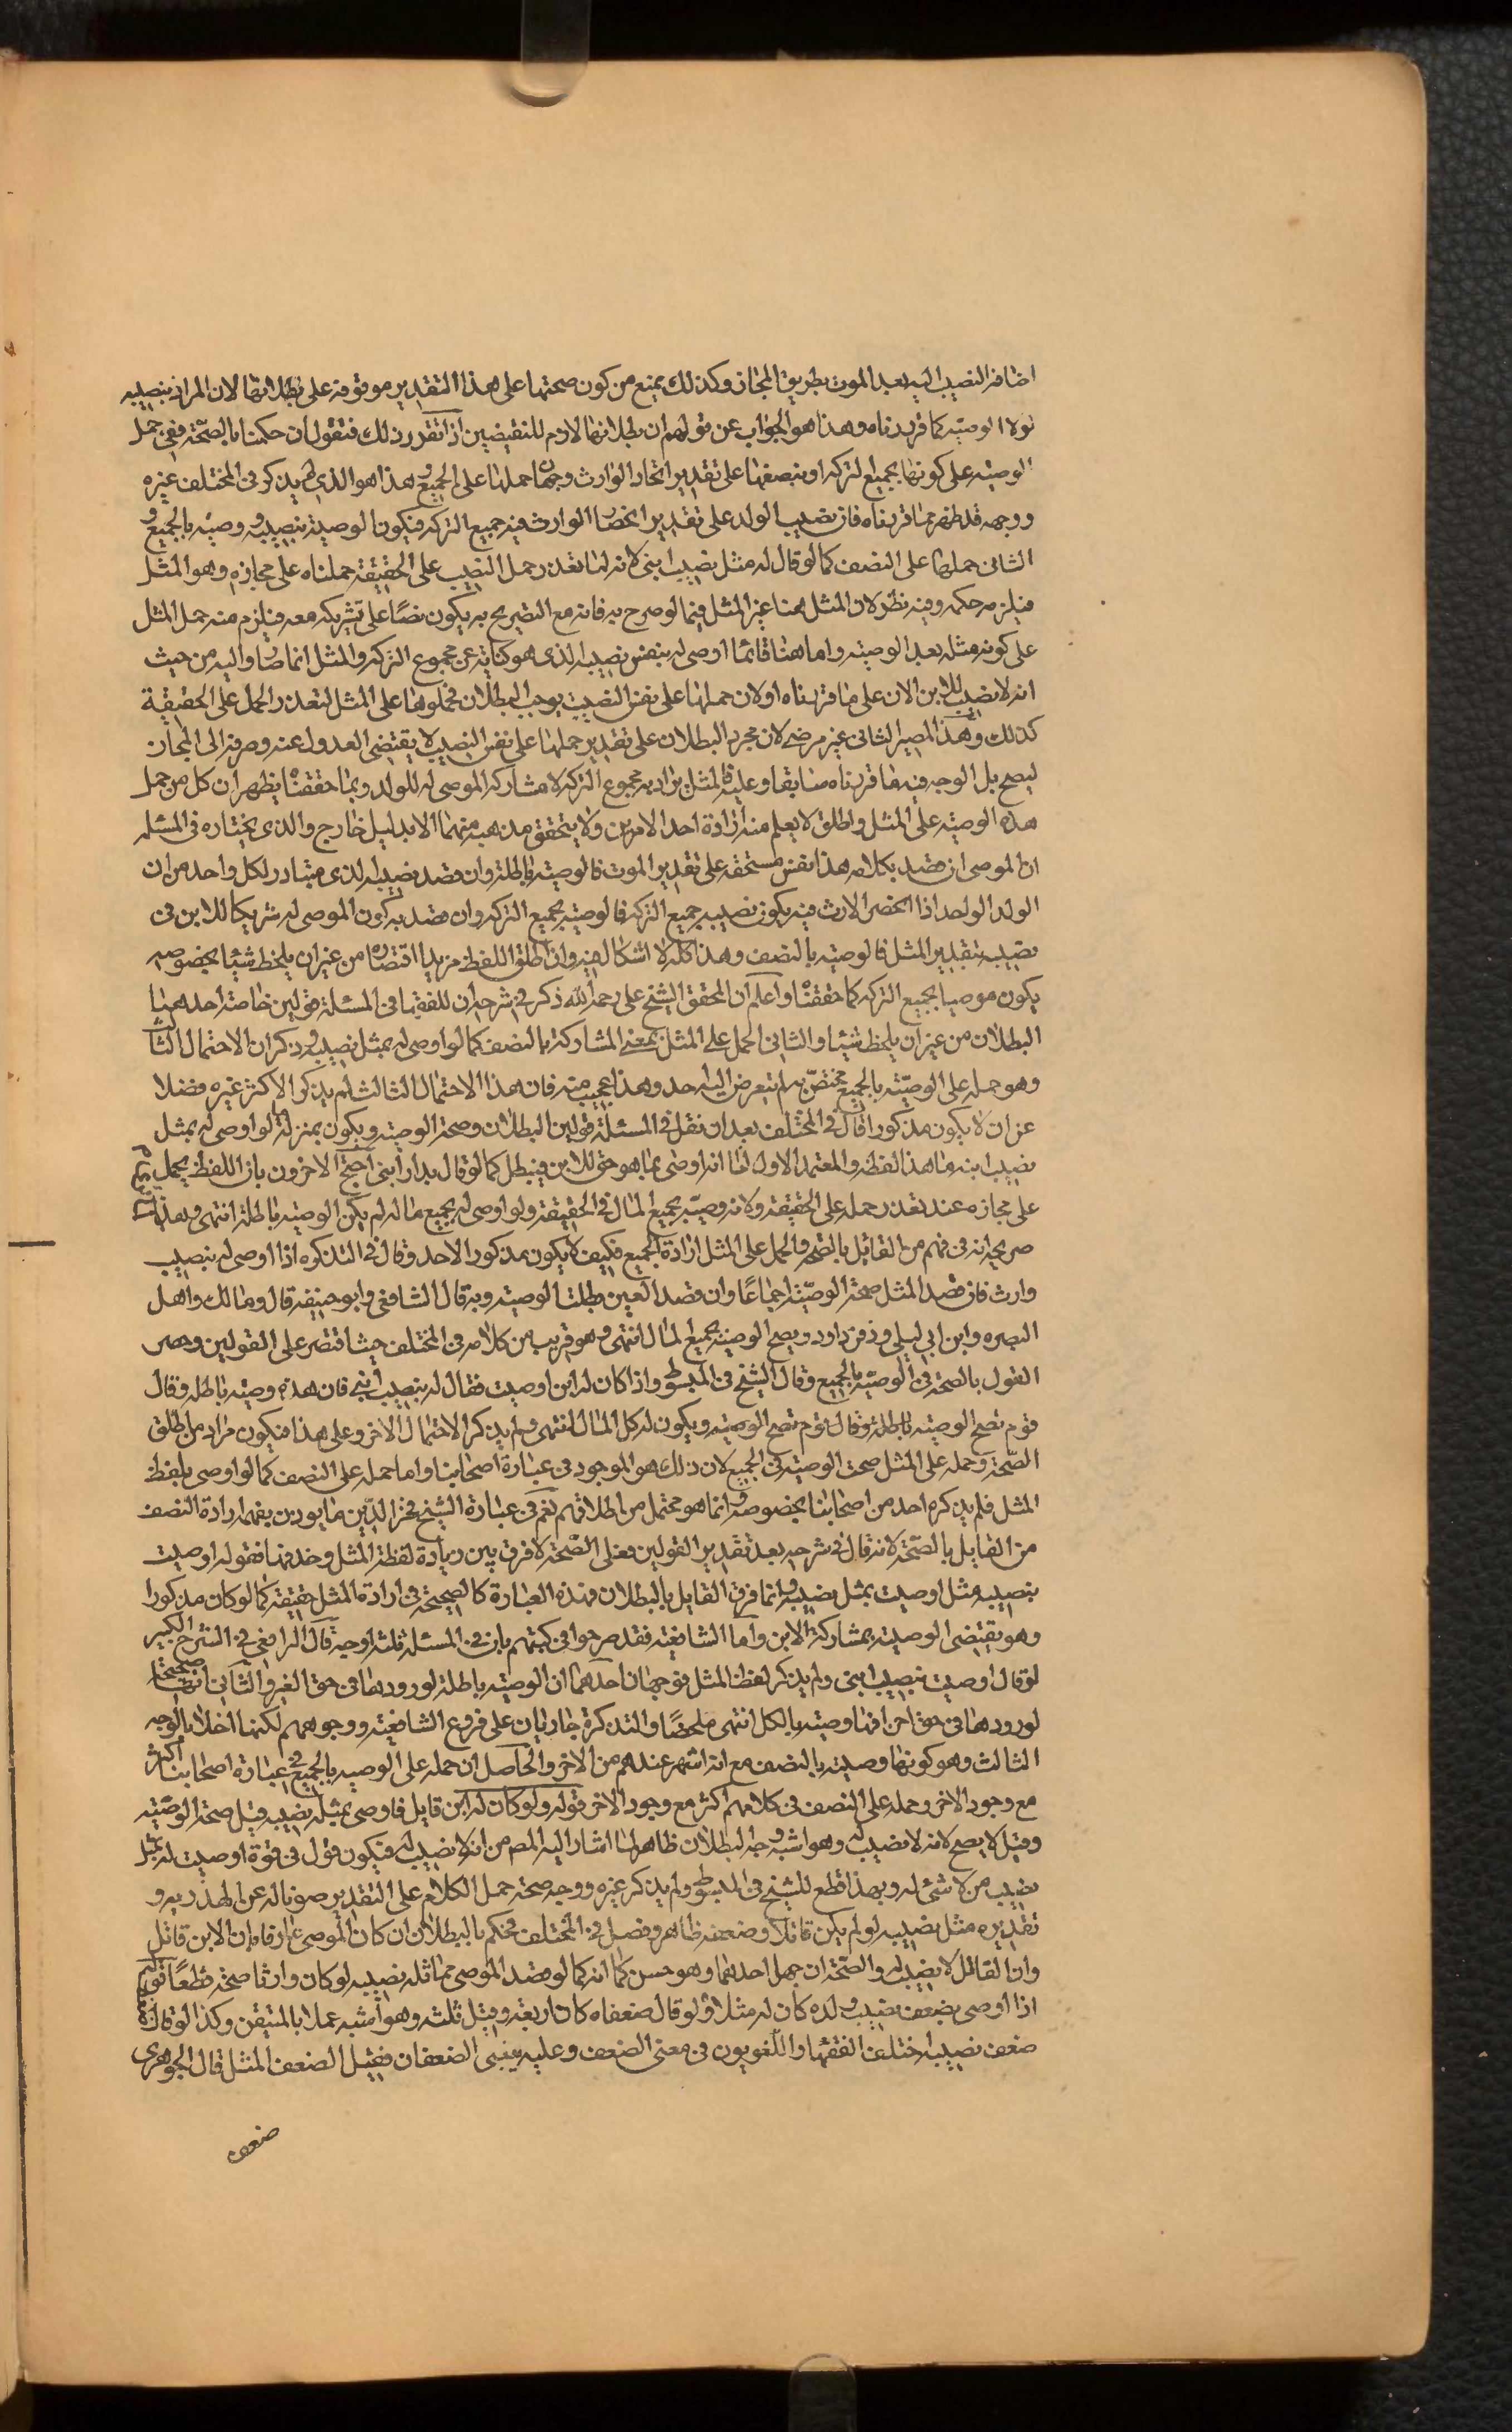 اضافة النصيب اليه بعد الموت بطريق المجاز وكذلك يمنع من كون صحتها على هذا التقدير موقوفة على بطلانها لان المراد بنصيبه
لولا الوصيّة كما قررناه وهذا هو الجواب عن قولهم ان بطلانها لازم للنقيضين اذا تقرر ذلك فنقول ان حكمنا بالصحّة ففي حمل
الوصيه على كونها بجميع التركه او بنصفها على تقدير اتحاد الوارث وجهان احدهما حملها على الجميع وهذا هو الذي لم يذكر في المختلف غيره
ووجهه قد ظهر مما قررناه فان نصيب الولد على تقدير انحصار الوارث فيه جميع التركه فيكون الوصية بنصيبه وصيّه بالجميع و
الثاني حملها على النصف كما لو قال له مثل نصيب ابني لانه لما تعذر حمل النصيب على الحقيقة حملناه على مجازه وهو المثل
فيلزمه حكمه وفيه نظر لان المثل هنا غير المثل فيما لو صرح به فانه مع التصريح به يكون نصّا على تشريكه معه فيلزم منه حمل المثل
على كونه مثله بعد الوصيه واما هنا فانما اوصى له بنفس نصيبه الذي هو كناية عن مجموع التركه والمثل انما صاروا اليه من حيث
انه لا نصيب للابن الان على ما قررناه او لان حملها على نفس النصيب يوجب البطلان فحملوها على المثل لتعذر الحمل على الحقيقة
كذلك وهذا المصير الثاني غير مرضي لان مجرد البطلان على تقدير حملها على نفس النصيب لا يقتضي العدول عنه وصرفه الى المجاز
ليصح بل الوجه فيه ما قررناه سابقا وعليه فالمثل يراد به مجموع التركه لا مشاركه الموصى له للولد وبما حققناه يظهر ان كل من حمل
هذه الوصيه على المثل واطلق لا يعلم منه ارادة احد الامرين ولا يتحقق مذهبه منهما الا بدليل خارج والذي يختاره في المسئله
ان الموصى ان قصد بكلامه هذا نفس مستحقه على تقدير الموت فالوصيّه باطلة وان قصد نصيبه الذي يتبادر لكل واحد من ان
الولد الواحد اذا انحصر الارث فيه يكون نصيبه جميع التركه فالوصيّه بجميع التركه وان قصد به كون الموصى له شريكا للابن في
نصيبه بتقدير المثل فالوصيّه بالنصف وهذا كله لا اشكال فيه وان اطلق اللفظ مريدا اقتضاه من غير ان يلحظ شيئا بخصوصه
يكون موصيا بجميع التركه كما حققناه واعلم ان المحقق الشيخ علي رحمه الله ذكر في شرحه ان للفقها في المسئلة قولين خاصة احدهما
البطلان من غير ان يلحظ شيئا والثاني الحمل على المثل بمعنى المشاركة بالنصف كما لو اوصى له بمثل نصيبه وذكر ان الاحتمال الثا
وهو حمله على الوصيّه بالجميع مختصّ به لم يتعرض اليه احد وهذا عجيب منه فان هذا الاحتمال الثالث لم يذكر الاكثر غيره فضلا
عن ان لا يكون مذكورا قال في المختلف بعد ان نقل في المسئلة قولين البطلان وصحة الوصيه ويكون بمنزلة ما لو اوصى له بمثل
نصيب ابنه ما هذا لفظه والمعتمد الاول لنا انه اوصى بما هو حق للابن فيبطل كما لو قال بدار ابني احتج الاخرون بان اللفظ يحمل
على مجازه عند تعذر حمله على الحقيقة ولانه وصيّة بجميع المال في الحقيقة ولو اوصى له بجميع ماله لم يكن الوصيّه باطلة انتهى وهذا
صريح انه في فهم من القائل بالصحة والحمل على المثل ارادة الجميع فكيف لا يكون مذكورا لاحد وقال في التذكره اذا اوصى له بنصيب
وارث فان قصد المثل صحة الوصيّة اجماعًا وان قصد العين بطلت الوصيه وبه قال الشافعي وابو حنيفه قال ومالك واهل
البصره وابن ابي ليلى وزفر وداود ويصح الوصيّه بجميع المال انتهى وهو قريب من كلامه في المختلف حيث اقتصر على القولين وحصر
القول بالصحة في الوصيّه بالجميع وقال الشيخ في المبسوط واذا كان له ابن اوصيت فقال له بنصيب ابني فان هذه وصيّه باطله وقال
قوم تصح الوصيّه باطلة وقال قوم تصح الوصيّه ويكون له كل المال انتهى ولم يذكر الاحتمال الاخر وعلى هذا فيكون مراد من اطلق
الصّحة وحمله على المثل صحت الوصيّه في الجميع لان ذلك هو الموجود في عبارة اصحابنا واما حمله على النصف كما لو اوصى بلفظ
المثل فلم يذكره احد من اصحابنا بخصوصه وانما هو محتمل من اطلاقهم نعم في عبارة الشيخ فخر الدّين ما يوذن بفهمه ارادة النصف
من القايل بالصّحة لانه قال في شرحه بعد تقدير القولين فعلى الصّحة لا فرق بين زيادة لفظة المثل وحذفها فقوله اوصيت
بنصيبه مثل اوصيت بمثل نصيبه وانما فرق القايل بالبطلان فهذه العبارة كالصريحة في ارادة المثل حقيقة كما لو كان مذكورا
وهو يقتضي الوصيّه بمشاركة الابن وأما الشافعيّه فقد صرحوا في كتبهم بان في المسئلة ثلثة اوجه قال الرافعي في الشرح الكبير
لو قال اوصيت بنصيب ابني ولم يذكر لفظ المثل فوجهان احدهما ان الوصيّه باطلة لورودها في حق الغير والثاني انها صحيحة
لورودها في حق ابن انها وصيّه بالكل انتهى ملخصًا والتذكرة جاريان على فروع الشافعيّه ووجوههم لكنهما اخلا بالوجه
الثالث وهو كونها وصيّت بالنصف مع انه اشهر عندهم من الاخر والحاصل ان حمله على الوصيه بالجميع في عبارة اصحابنا اكثر
مع وجود الاخر وحمله على النصف في كلامهم اكثر مع وجود الاخر قوله ولو كان له ابن قايل فاوصى بمثل نصيبه قيل صحة الوصيّه
وقيل لا يصح لانه لا نصيب له وهو اشبه وجه البطلان ظاهر لما اشار اليه المصر من انه لا نصيب له فيكون قول في قوة اوصيت له بمثل
نصيب من لا شئ له وبهذا قطع للشيخ في المبسوط ولم يذكر غيره ووجه صحة حمل الكلام على التقدير صونا له عن الهذريه و
تقديره مثل نصيبه لو لم يكن قاتلا وضعفه ظاهر وفصل في المختلف فحكم بالبطلان ان كان الموصى عارفا بان الابن قاتل
وان القاتل لا نصيب له والصّحة ان جهل احدهما وهو حسن كما انه كما لو قصد الموصى مماثلة نصيبه لو كان وارثا صحة قطعًا قوله
اذا اوصى بضعف نصيب ولده كان له مثلاه ولو قال ضعفاه كان اربعة وقيل ثلثه وهو أشبه عملا بالمتيقن وكذا لو قال
ضعف نصيبه اختلف الفقها واللّغويون في معنى الضعف وعليه ينبني الضعفان فقيل الضعف المثل قال الجوهري
ضعف